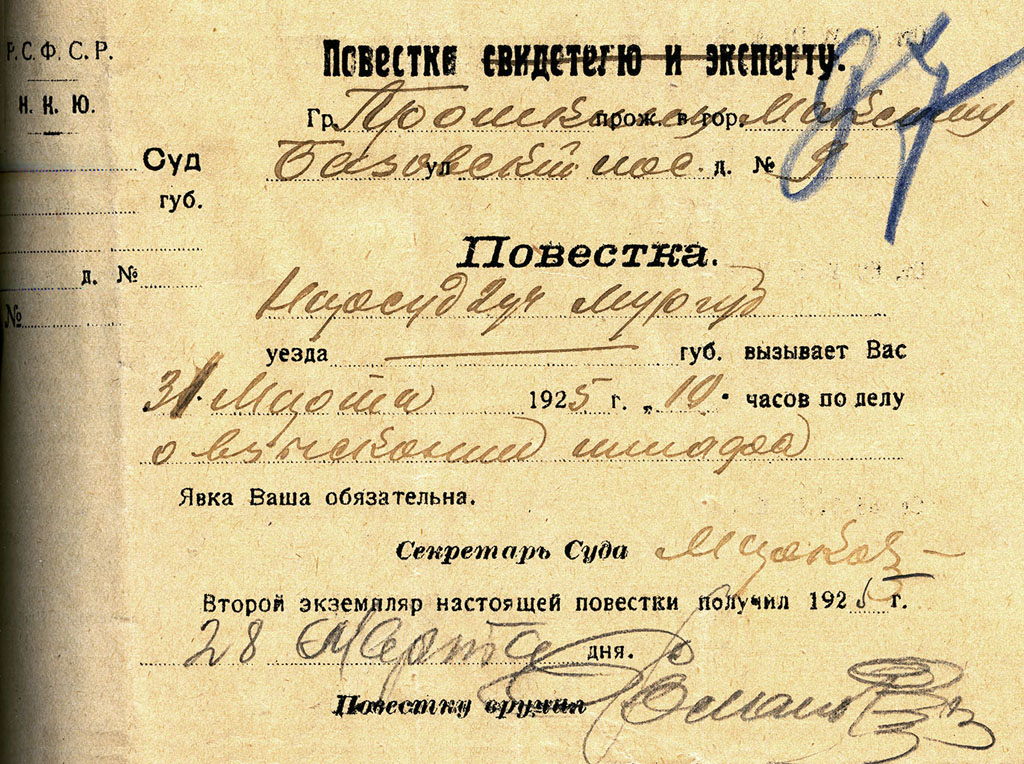 Р.С.Ф.С.Р.
Н. К. Ю.
Суд
губ.
д. №
№
87
Повестка свидетелю и эксперту.
Гр. Прошкину прож. в гор. Максиму
Базовский ул пос. д. № 9
Повестка.
Нарсуд 2 уч
уезда губ. вызывает Вас
31 Марта 1925 г. „ 10 " часов по делу
о взыскании штрафа
Явка Ваша обязательна.
Секретарь Суда
Второй экземпляр настоящей повестки получил 1925 г.
28 Марта дня.
Повестку вручил